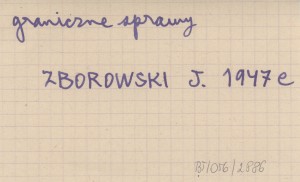 graniczne sprawy
ZBOROWSKI J. 1947 e
BT/016/2886